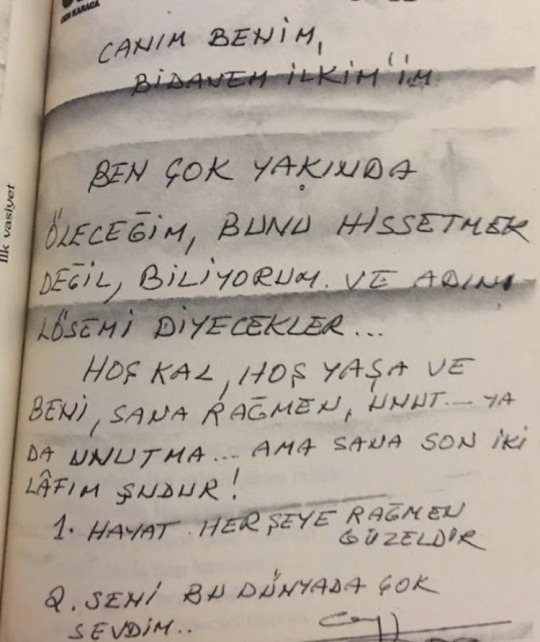 CEM KARACA
CANIM BENİM,
BİDANEM İLKİM'İM
BEN ÇOK YAKINDA
ÖLECEĞİM, BUNU HİSSETMEK
DEĞİL, BİLİYORUM. VE ADINI
LÖSEMİ DİYECEKLER...
HOŞ KAL, HOŞ YAŞA VE
BENİ, SANA RAĞMEN, UNUT... YA
DA UNUTMA... AMA SANA SON İKİ
LÂFIM ŞUDUR!
1. HAYAT HERŞEYE RAĞMEN
GÜZELDİR
2. SENİ BU DÜNYADA ÇOK
SEVDİM..
İlk vasiyet